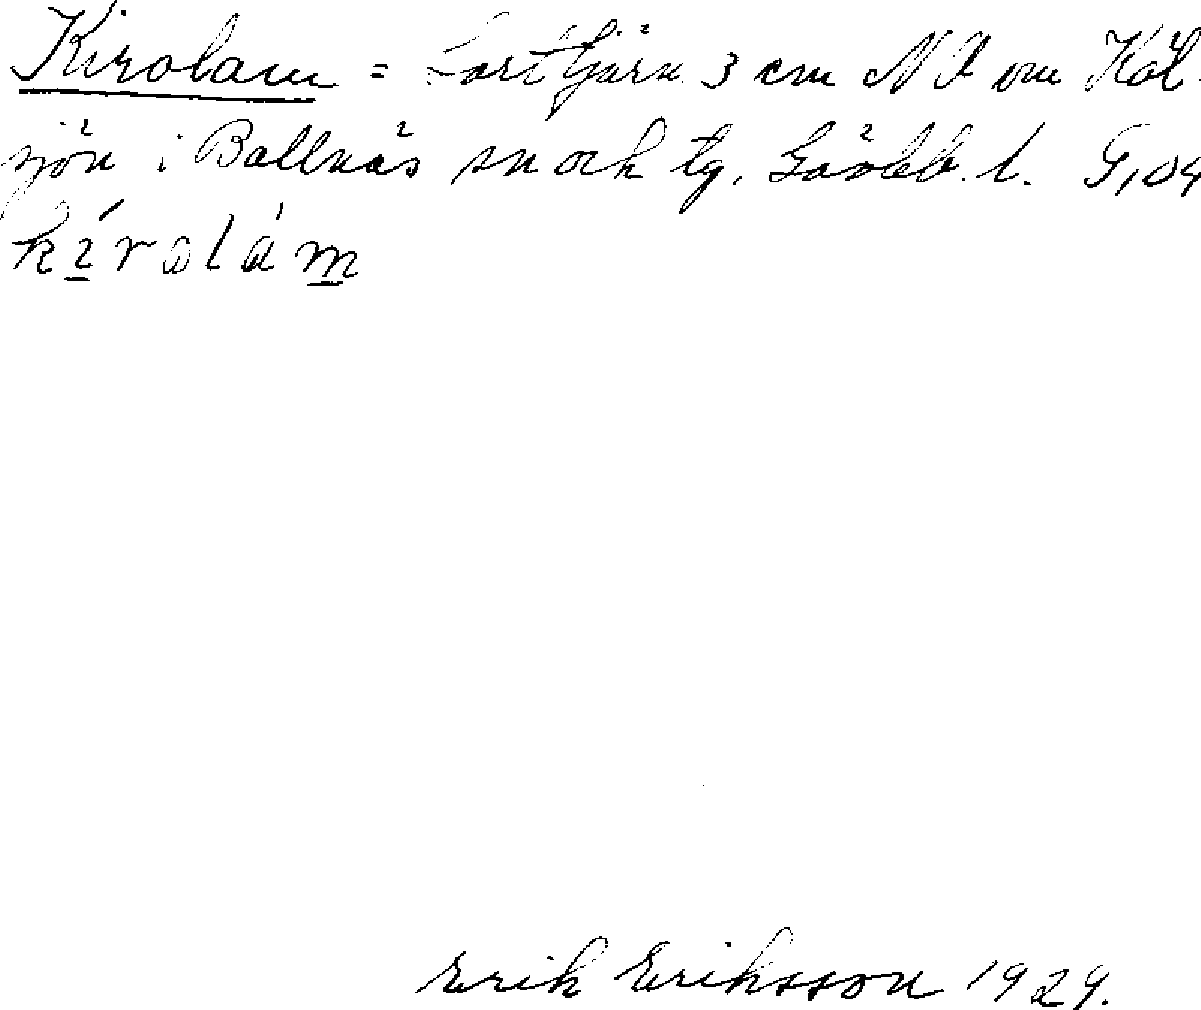 Kirolam = Lorttjärn 3 cm NV om Köl-
sjön i Bollnäs sn och tg, Gävleb. l. G, 04
kírolám
Erik Eriksson 1929.